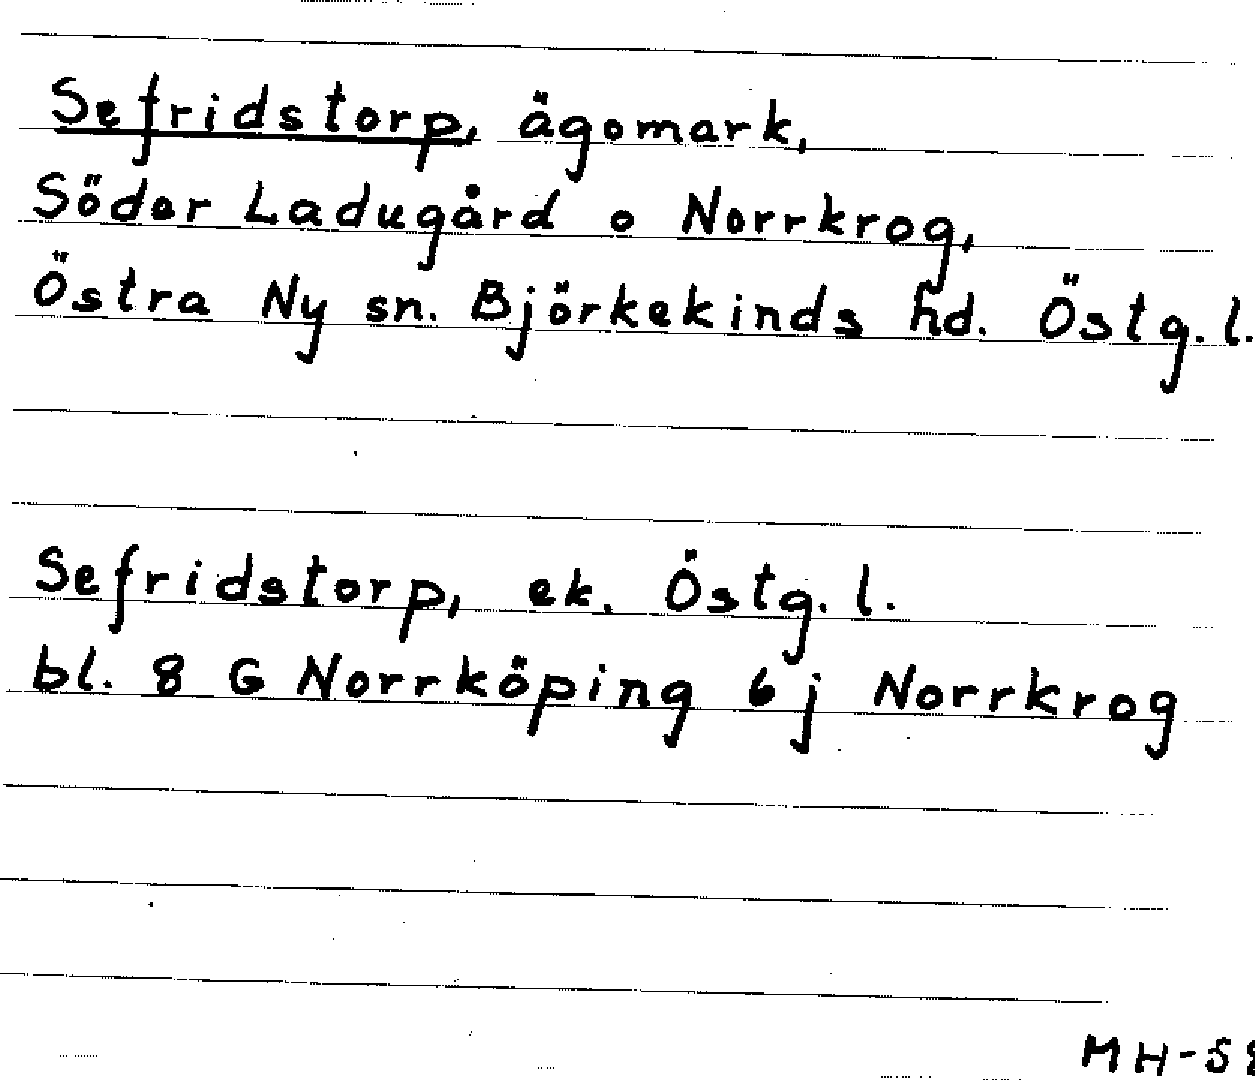 Sefridstorp, ägomark,
Söder Ladugård o Norrkrog,
Östra Ny sn. Björkekinds hd. Östg. l.
Sefridstorp, ek. Östg. l.
bl. 8 G Norrköping 6 j Norrkrog